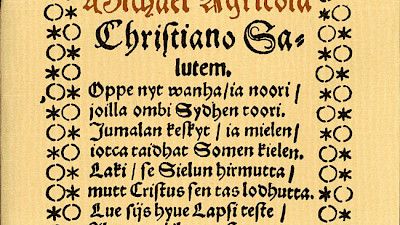 Michael Agricola
Christiano Sa-
lutem.
Oppe nyt wanha/ia noori/
joilla ombi Sydhen toori.
Jumalan keskyt/ia mielen/
iotca taidhat Somen kielen.
Laki/se Sielun hirmutta/
mutt Cristus sen tas lodhutta.
Lue sijs hyue Lapsi teste/